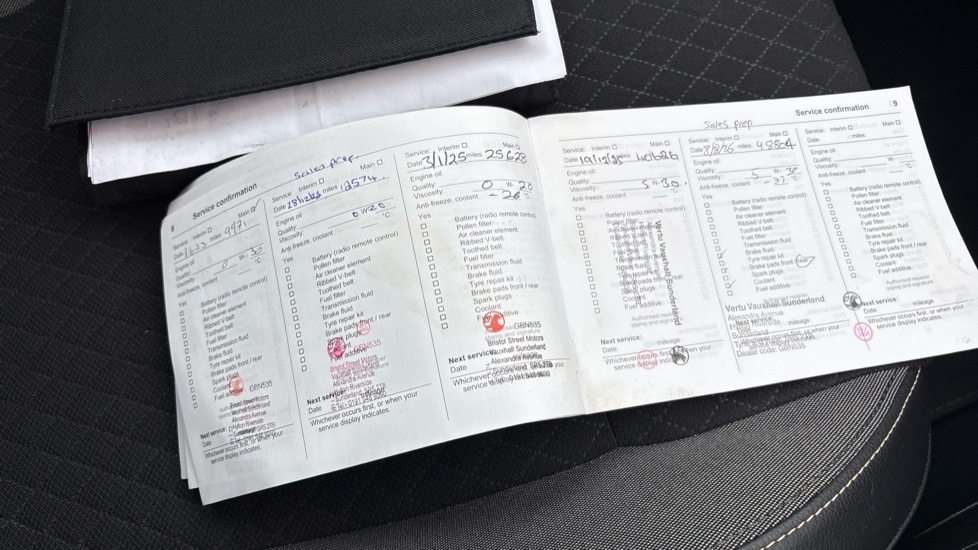 8 Service confirmation
Service: Interim Main
Date miles 9971
Engine oil
Quality
Viscosity: 0 W- 30
Anti-freeze, coolant °C
Yes
Battery (radio remote control)
Pollen filter
Air cleaner element
Ribbed V-belt
Toothed belt
Fuel filter
Transmission fluid
Brake fluid
Tyre repair kit
Brake pads front / rear
Spark plugs
Coolant
Fuel additive
GBN535
Bristol Street Motors
Vauxhall Sunderland
Alexandra Avenue
Next service:
Date
Whichever occurs first, or when your
service display indicates.
Sales prep.
Service: Interim Main
Date miles 12574
Engine oil
Quality
Viscosity: 0 W 20
Anti-freeze, coolant °C
Yes
Battery (radio remote control)
Pollen filter
Air cleaner element
Ribbed V-belt
Toothed belt
Fuel filter
Transmission fluid
Brake fluid
Tyre repair kit
Brake pads front / rear
Spark plugs
GBN535
Bristol Street Motors
Alexandra Avenue
Next service:
Date
Whichever occurs first, or when your
service display indicates.
Service: Interim Main
Date 3/1/25 miles 25628
Engine oil
Quality
Viscosity: 0 W- 20
Anti-freeze, coolant - 26 °C
Yes
Battery (radio remote control)
Pollen filter
Air cleaner element
Ribbed V-belt
Toothed belt
Fuel filter
Transmission fluid
Brake fluid
Tyre repair kit
Brake pads front / rear
Spark plugs
Coolant
Fuel additive
GBN535
Bristol Street Motors
Vauxhall Sunderland
Alexandra Avenue
Next service:
Date
Whichever occurs first, or when your
Service confirmation 9
Sales prep
Service: Interim Main
Date miles 40686
Engine oil
Quality
Viscosity: 5 W- 30
Anti-freeze, coolant °C
Yes
Battery (radio remote control)
Pollen filter
Fuel additive
Vertu Vauxhall Sunderland
Next service:
Date
Whichever occurs first, or when your
service display indicates.
Service: Interim Main
Date miles 48804
Engine oil
Quality
Viscosity: 5 W- 30
Anti-freeze, coolant - 37 °C
Yes
Battery (radio remote control)
Pollen filter
Air cleaner element
Ribbed V-belt
Toothed belt
Fuel filter
Transmission fluid
Brake fluid
Tyre repair kit
Brake pads front / rear
Spark plugs
Coolant
Fuel additive
Vertu Vauxhall Sunderland
Alexandra Avenue
Dealer code: GBN535
Service: Interim Main
Date miles
Engine oil
Quality
Viscosity: W-
Anti-freeze, coolant °C
Yes
Battery (radio remote control)
Pollen filter
Air cleaner element
Ribbed V-belt
Toothed belt
Fuel filter
Transmission fluid
Brake fluid
Tyre repair kit
Brake pads front / rear
Spark plugs
Coolant
Fuel additive
Next service:
Date mileage
Whichever occurs first, or when your
service display indicates.